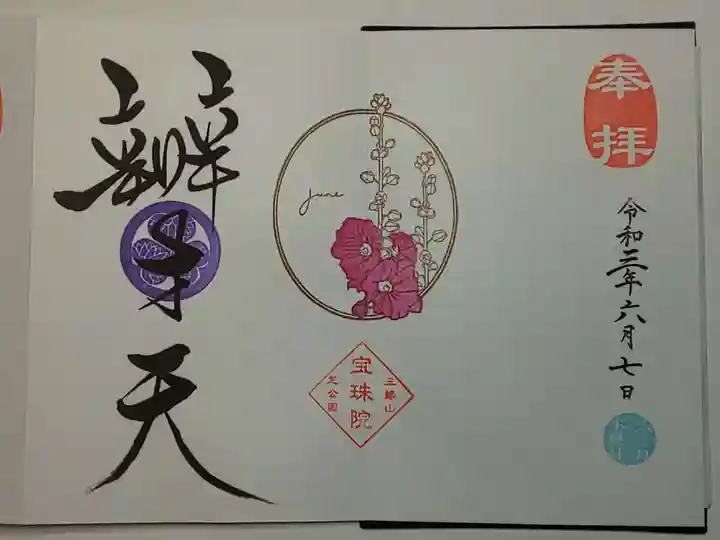 奉拝
令和三年六月七日
June
三縁山
宝珠院
芝公園
辨才天